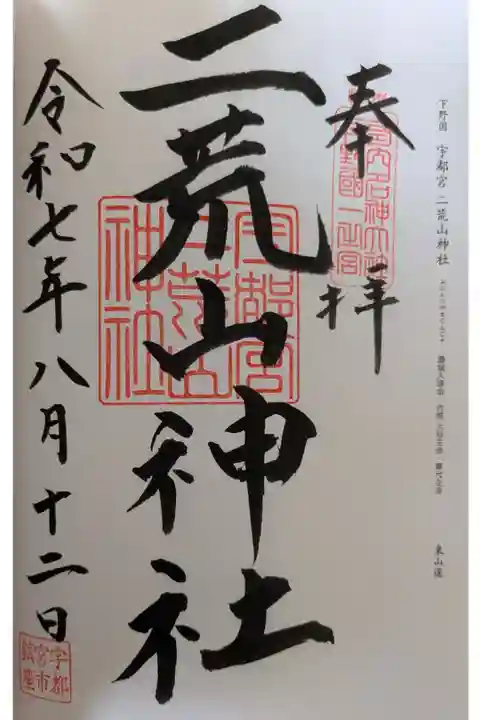 下野国 宇都宮二荒山神社
東山道
奉拝
二荒山神社
宇都宮
二荒山
神社
令和七年八月十二日
宇都
宮市
鎮座